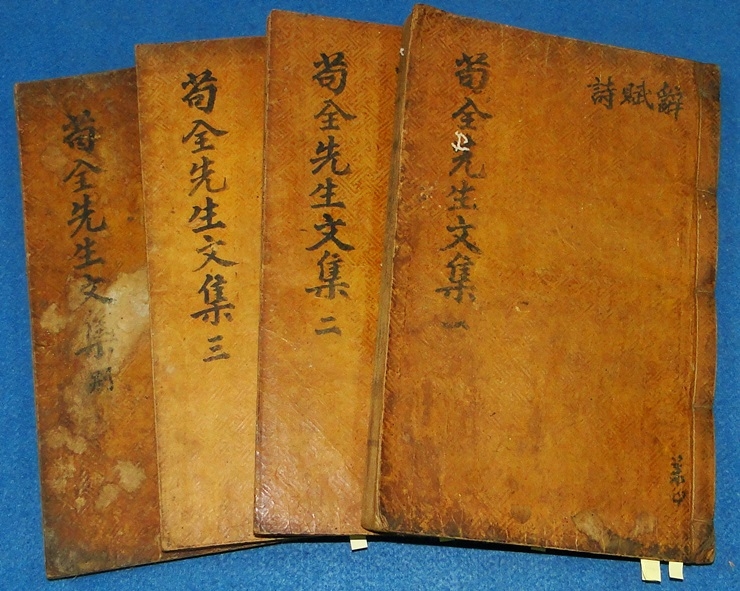 辭賦詩
苟全先生文集 一
苟全先生文集 二
苟全先生文集 三
苟全先生文集